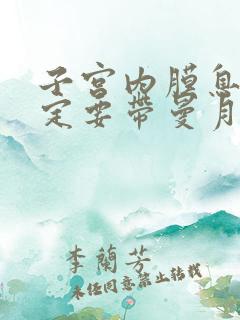 子宫内膜息
定要带曼月
李蘭芳
未经同意禁止转载